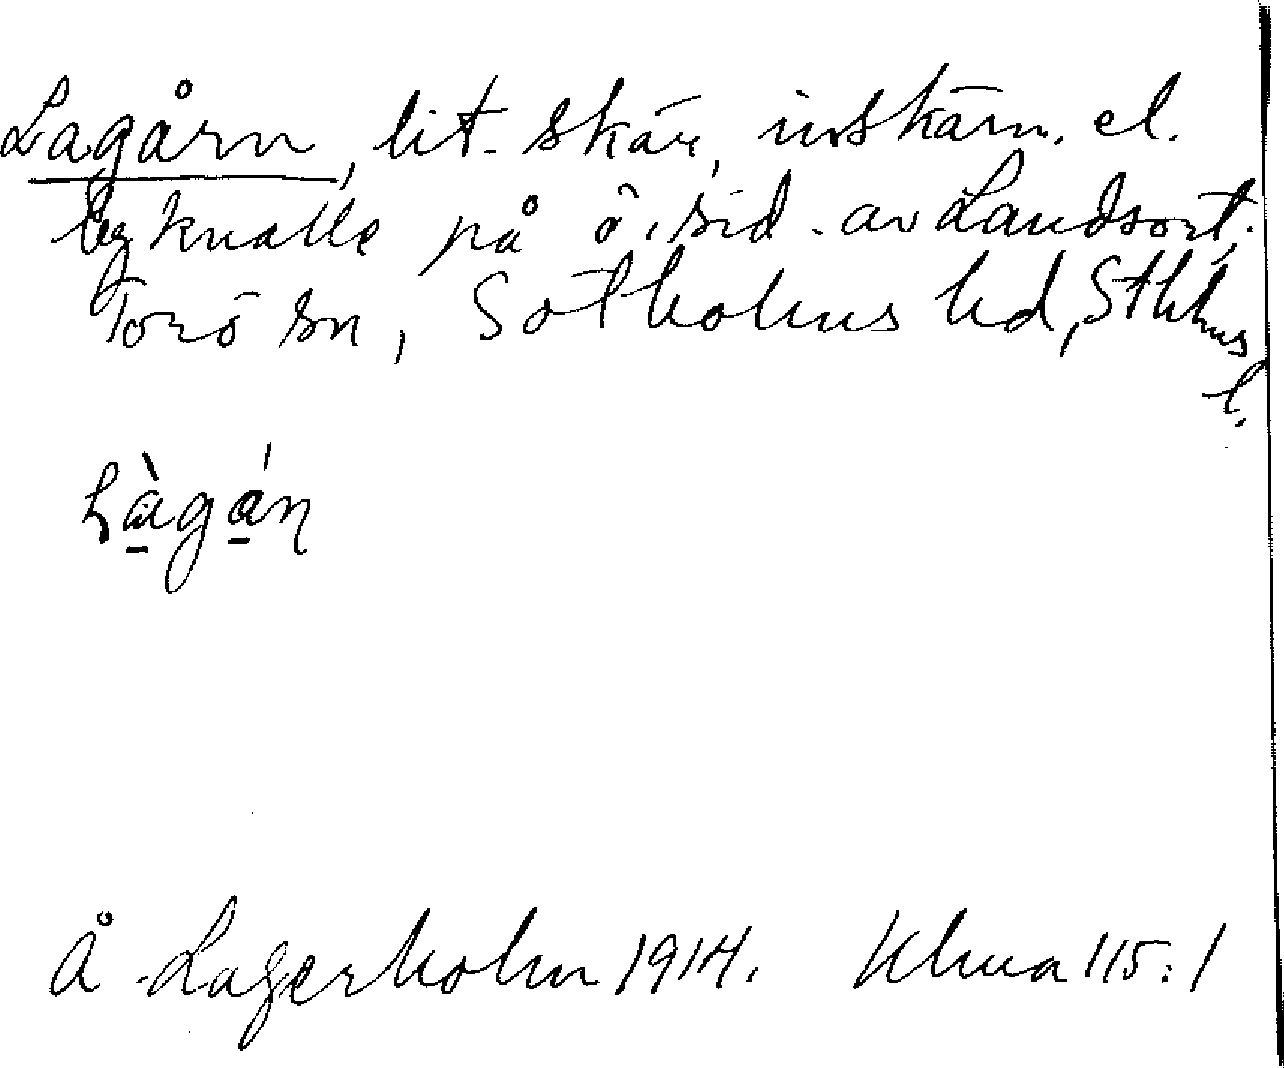 Lagårn, lit. skär, inskärn. el.
bgknalle på ö. sid. av Landsort,
Torö sn, Sotholms hd, Sthlms
l.
LåA. Lagerholm 1914. Klma 115:1